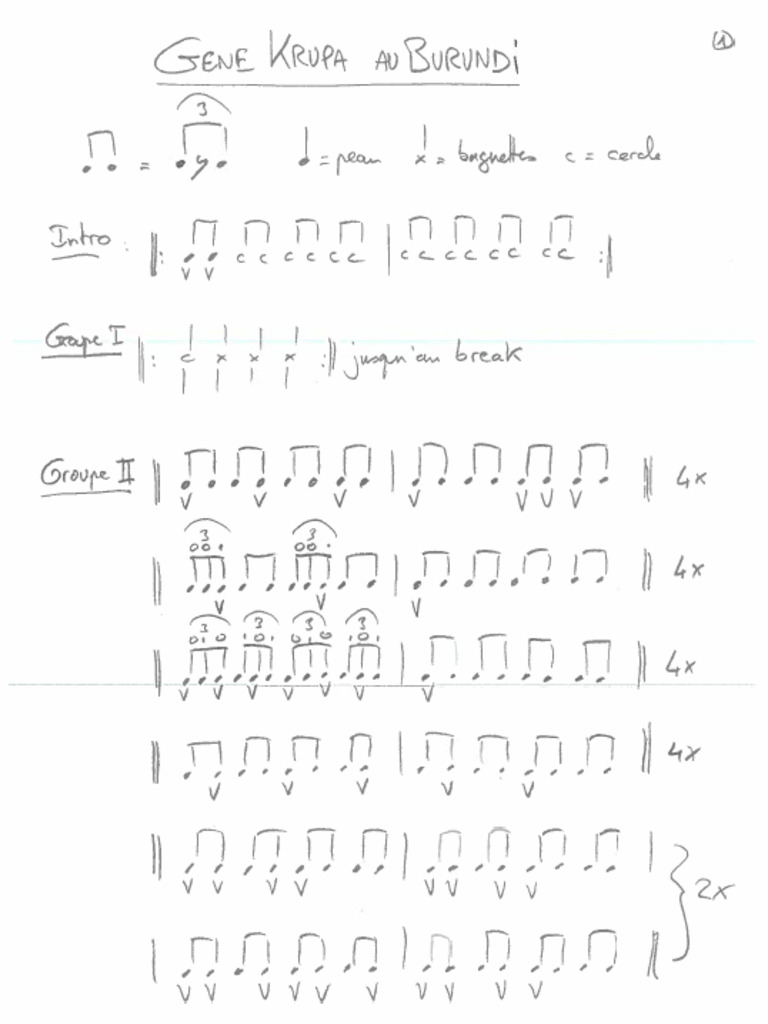 GENE KRUPA AU BURUNDI
1
3
= = peau x = baguettes c = cercle
Intro : c c c c c c c c c c c c c c
V V
Groupe I c x x x jusqu'au break
Groupe II 4x
V V V V V V V
3 3
o o . o o .
4x
V V V
3 3 3 3
4x
V V V V V V V
4x
V V V V V
V V V V V V V V
2x
V V V V V V V V V V